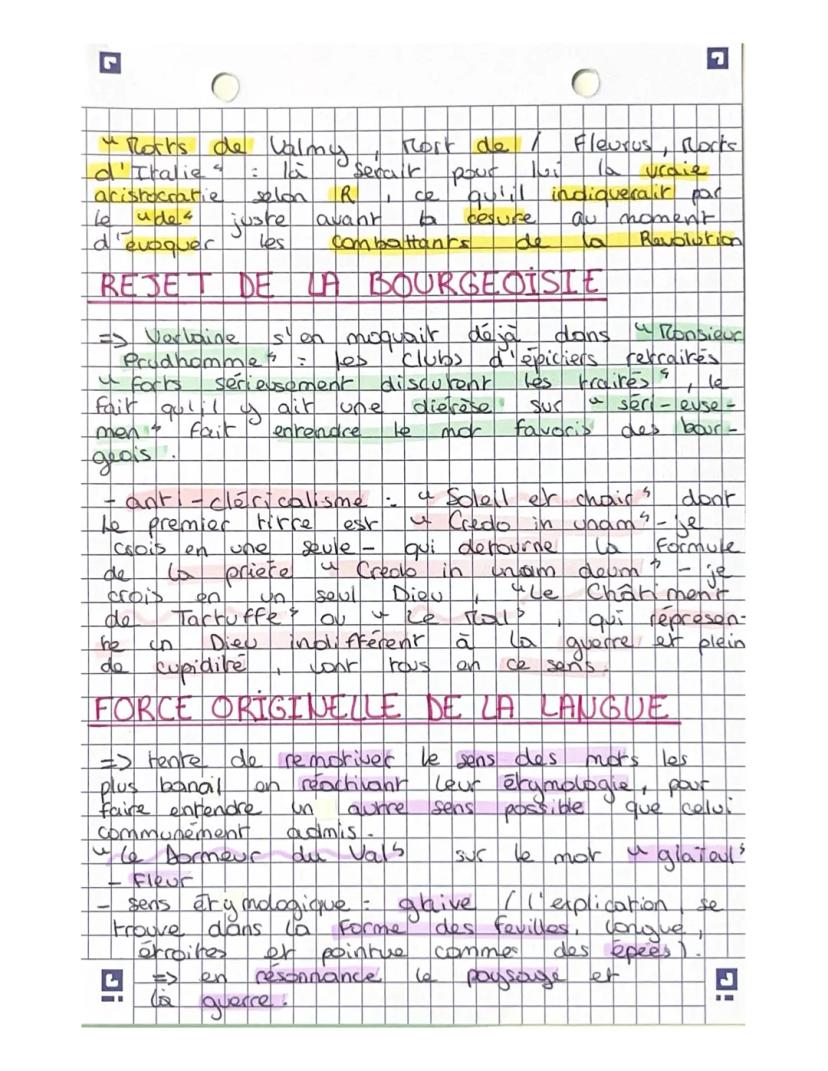 "Morts de Valmy, Mort de / Fleurus, Morts
d'Italie" : là serait pour lui la vraie
aristocratie selon R, ce qu'il indiquerait par
le "de" juste avant la césure au moment
d'évoquer les combattants de la Revolution
REJET DE LA BOURGEOISIE
=> Verlaine s'en moquait déjà dans "Monsieur
Prudhomme" : les clubs d'épiciers retraités
"forts sérieusement discutent les traités", le
fait qu'il y ait une diérèse sur "séri-euse-
men" fait entendre le mot favoris des bour-
geois.
- anti-cléricalisme : "Soleil et chair" dont
le premier titre est "Credo in unam" - je
crois en une seule - qui détourne la formule
de la prière "Credo in unam deum" - je
crois en un seul Dieu, "Le Châtiment
de Tartuffe" ou "Le Mal", qui réprésen-
te un Dieu indifférent à la guerre et plein
de cupidité, vont tous en ce sens.
FORCE ORIGINELLE DE LA LANGUE
=> tente de remotiver le sens des mots les
plus banail en réactivant leur étymologie, pour
faire entendre un autre sens possible que celui
communément admis.
"Le Dormeur du Val" sur le mot "glaïeul"
- Fleur
- sens étymologique : glaive (l'explication se
trouve dans la forme des feuilles, longue,
étroites et pointue comme des épées).
=> en résonnance le paysage et
la guerre.